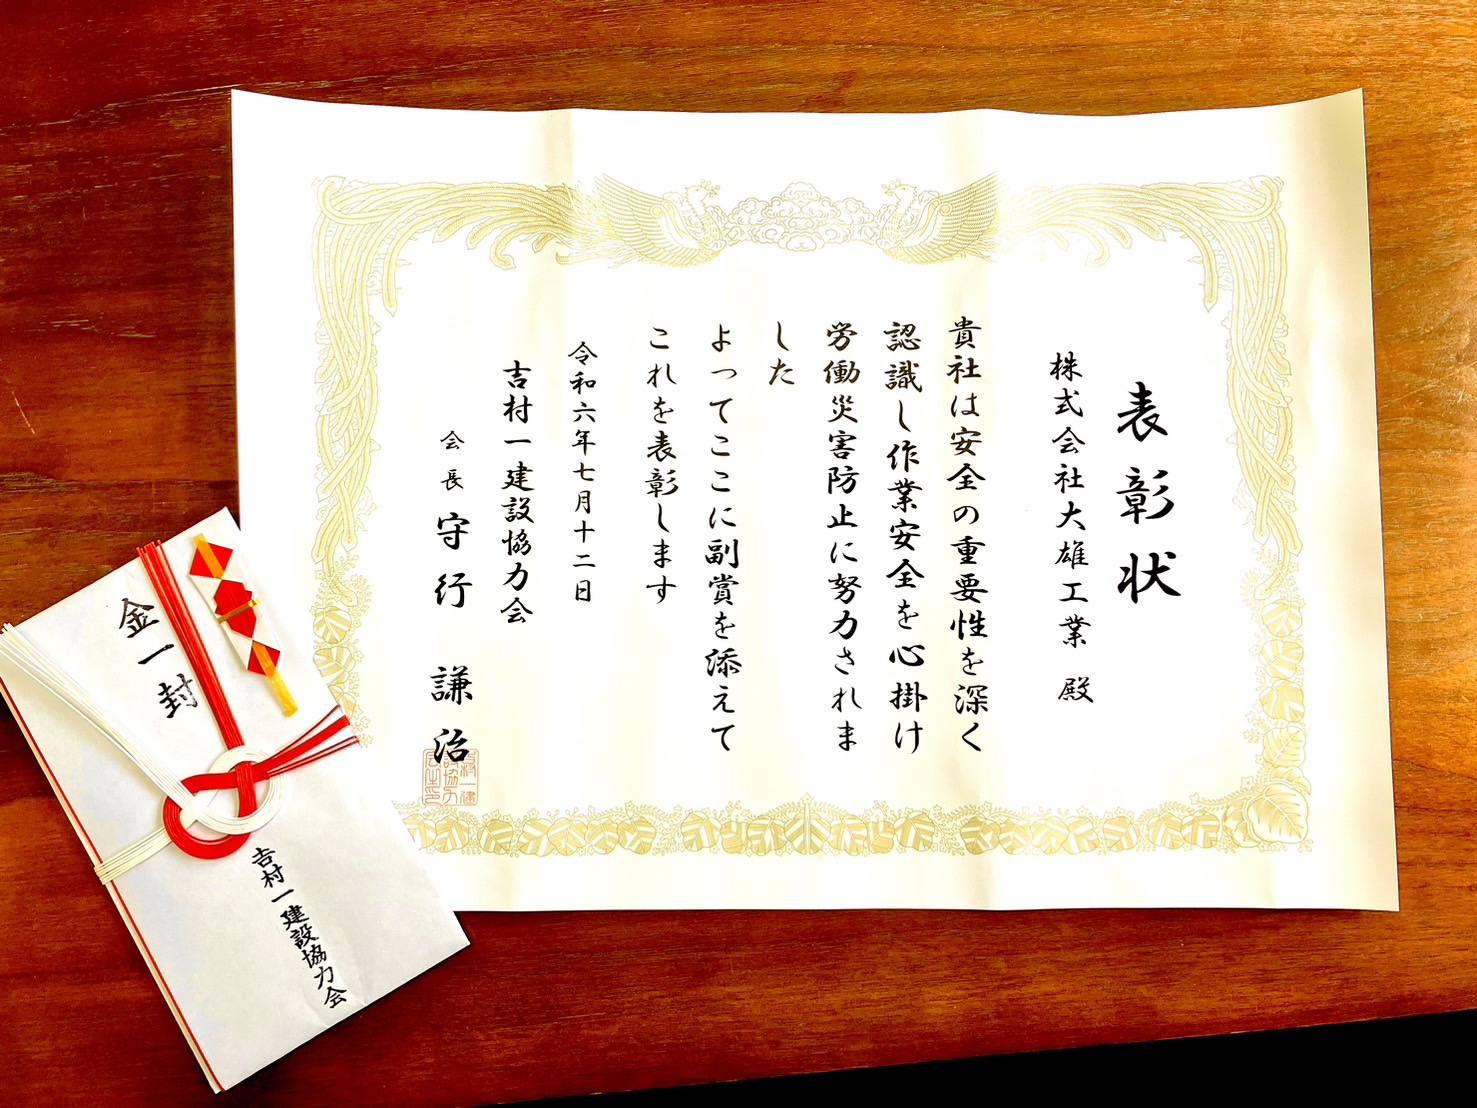 表彰状
株式会社大雄工業 殿
貴社は安全の重要性を深く
認識し作業安全を心掛け
労働災害防止に努力されま
した
よってここに副賞を添えて
これを表彰します
令和六年七月十二日
吉村一建設協力会
会長 守行 謙治
金一封
吉村一建設協力会